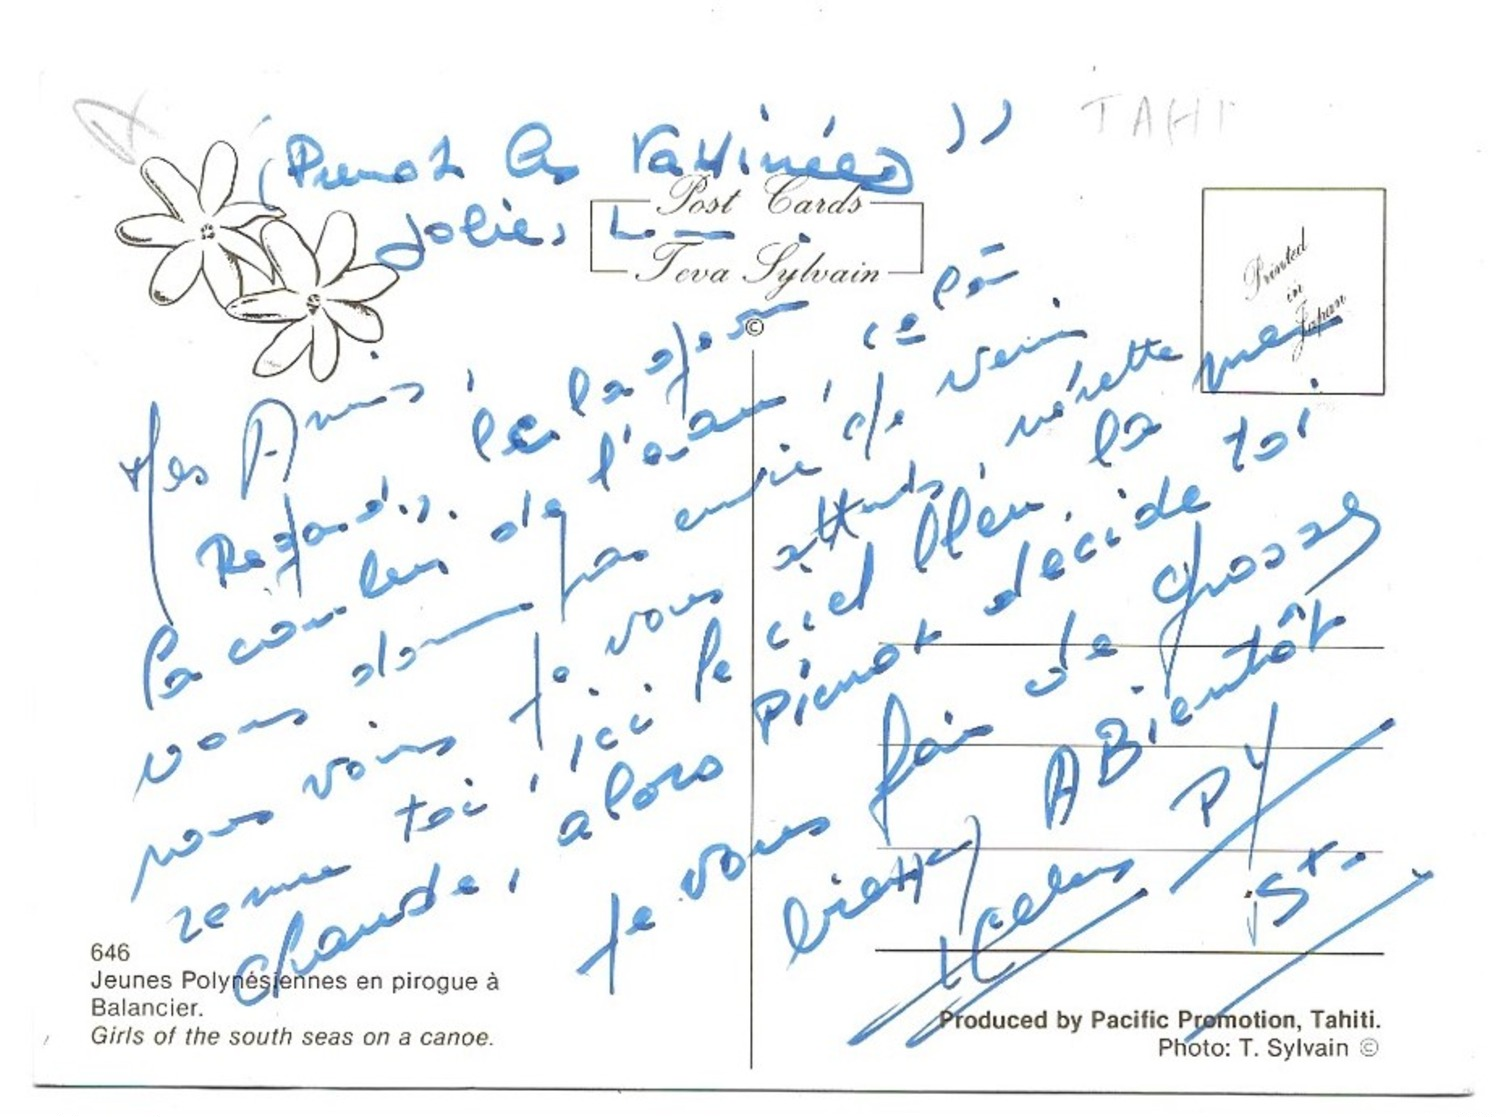 TAHI
(Pierrot les Vahinées ))
Jolies
Post Cards
Teva Sylvain
©
Printed
in
Japan
Mes Amis,
Regardez les lagons
la couleur de l'eau, cela
vous donne pas envie de venir
nous voir. Je vous attends mérette
toi, ici le ciel bleu, la mer
chaude, alors Pierrot décide toi
Je vous fais de grosses
A Bientôt
PY
646
Jeunes Polynésiennes en pirogue à
Balancier.
Girls of the south seas on a canoe.
Produced by Pacific Promotion, Tahiti.
Photo: T. Sylvain ©